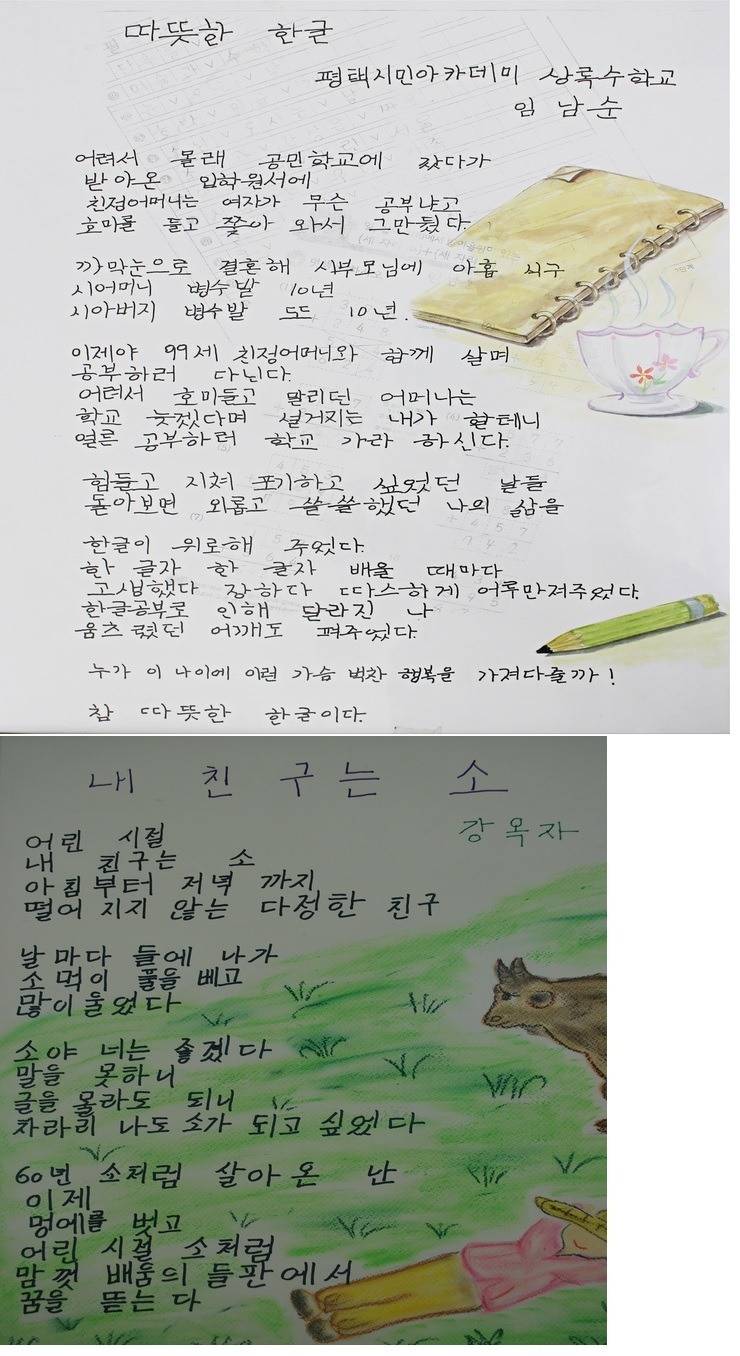 따뜻한 한글
평택시민아카데미 상록수학교
임남순
어려서 몰래 공민학교에 갔다가
받아온 입학원서에
친정어머니는 여자가 무슨 공부냐고
호미를 들고 쫓아 와서 그만뒀다.
까막눈으로 결혼해 시부모님에 아홉 식구
시어머니 병수발 10년
시아버지 병수발 또또 10년.
이제야 99세 친정어머니와 함께 살며
공부하러 다닌다.
어려서 호미들고 말리던 어머니는
학교 늦겠다며 설거지는 내가 할테니
얼른 공부하러 학교 가라 하신다.
힘들고 지쳐 포기하고 싶었던 날들
돌아보면 외롭고 쓸쓸했던 나의 삶을
한글이 위로해 주었다.
한 글자 한 글자 배울 때마다
고생했다 장하다 따스하게 어루만져주었다.
한글공부로 인해 달라진 나
움츠렸던 어깨도 펴주었다.
누가 이 나이에 이런 가슴 벅찬 행복을 가져다줄까!
참 따뜻한 한글이다.
내 친구는 소
강옥자
어린 시절
내 친구는 소
아침부터 저녁 까지
떨어 지지 않는 다정한 친구
날마다 들에 나가
소먹이 풀을 베고
많이울었다
소야 너는 좋겠다
말을 못하니
글을 몰라도 되니
차라리 나도 소가 되고 싶었다
60년 소처럼 살아온 난
이제
멍에를 벗고
어린 시절 소처럼
맘껏 배움의 들판에서
꿈을 뜯는다